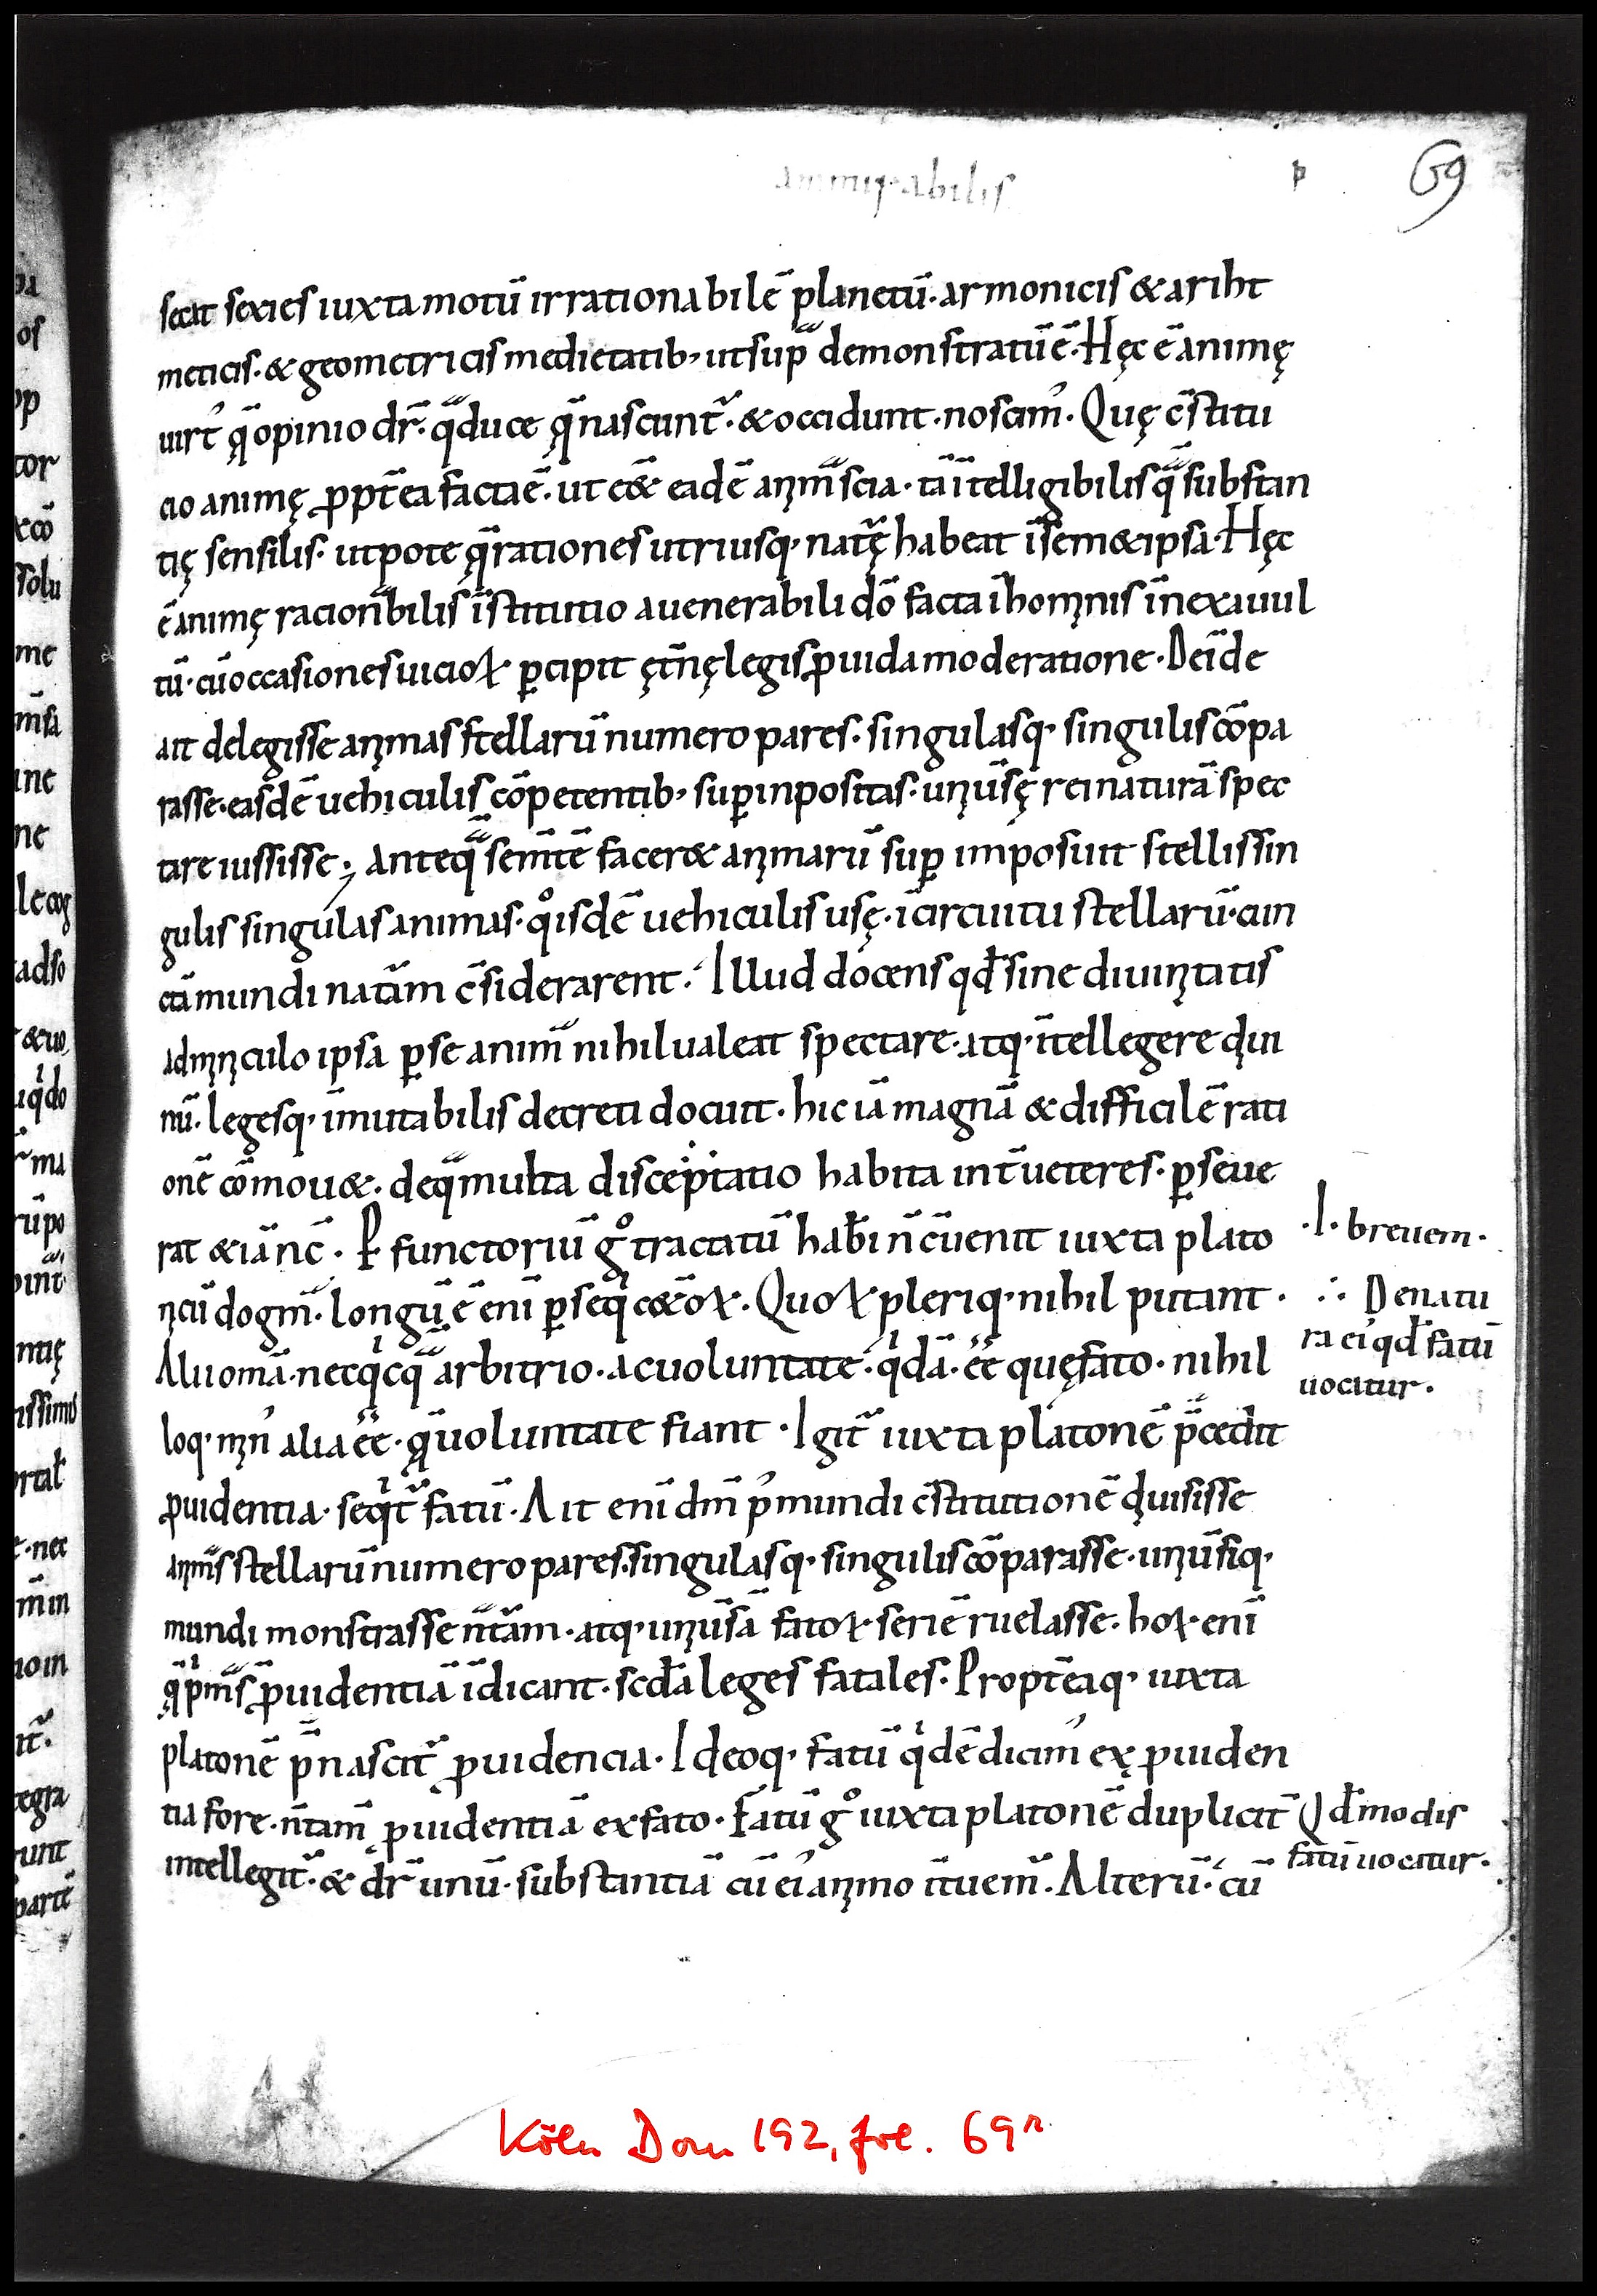 69
secat sexies iuxta motū irrationabilē planetū· armonicis & ariht
meticis· & geometricis medietatib; ut sup̄ demonstratū ē· Hęc ē animę
uirt' q̨̄ opinio dr̄· q̄ duce q̨̄ nascunt̄· & occidunt· noscim'· Quę c̄stitu
cio animę ꝓpt̄ea facta ē· ut e&̄ eadē anīm̄ scia· tā ītelligibilis q̄ substan
tię sensilis· utpote q̨̄ rationes utriusq· nat̄ę habeat ī sem&ipsa· Hęc
ē animę racion̄bilis īstitutio a uenerabili dō facta ī homīnis ī nexa uul
tū· cū occasiones uicioꝝ ꝑcipit ęt̄nę legis ꝓuida moderatione· Deīde
ait delegisse anīmas stellarū numero pares· singulasq· singulis cōpa
rasse· easdē uehiculis cōpetentib; suꝑinpositas· unīūsę rei naturā spec
tare iussisse; Anteq̄ sem̄tē facer& anīmarū suꝑ imposuit stellis sin
gulis singulas animas· qͦ isdē uehiculis usę· ī circuitu stellarū· cun
ctā mundi natām c̄siderarent· Illud docens qd̄ sine diuinītatis
admīnīculo ipsa ꝑ se anim̄ nihil ualeat spectare· atq· ītellegere diui
nū· legesq· īmutabilis decreti docuit· hic iā magnā & difficilē rati
onē cōmou&· deq̄ multa disceptatio habita int̄ ueteres· ꝑseue
rat & iā nc̄· P functoriū gͦ tractatū hab̄i n̄ c̄uenit iuxta plato
nīcū dogm̄· longū ē enī ꝑseqͥ c&̄oꝝ· Quoꝝ pleriq· nihil putant·
Alii omā· necqͥcq̄ arbitrio· ac uoluntate· qͥdā· ēē quę fato· nihil
loq· mīn' alia ēē· q̨̄ uoluntate fiant· Igit̄ iuxta platonē p̄cedit
ꝓuidentia· seqͥt̄ fatū· Ait enī dm̄ p' mundi c̄stitutionē diuisisse
anīm̄s stellarū numero pares· singulasq· singulis cōparasse· unīūsiq·
mundi monstrasse n̄tām· atq· unīūsā fatoꝝ seriē ruelasse· hoꝝ enī
q̨̄ pͥm̄s ꝓuidentiā īdicant· scd̄a leges fatales· Propt̄eaq· iuxta
platonē p̄nascit̄ ꝓuidencia· Ideoq· fatū qͥdē dicim' ex ꝓuiden
tia fore· n̄ tam̄ ꝓuidentiā ex fato· Fatū gͦ iuxta platonē duplicit̄
intellegit̄· & dr̄ unū· substantiā cū ei' anīmo ītuem̄· Alterū· cū
·I· breuem·
∴ De natu
ra ei' qd̄ fatū
uocatur·
Qd̄ modis
fatū uocatur·
Köln Dom 192, fol. 69r